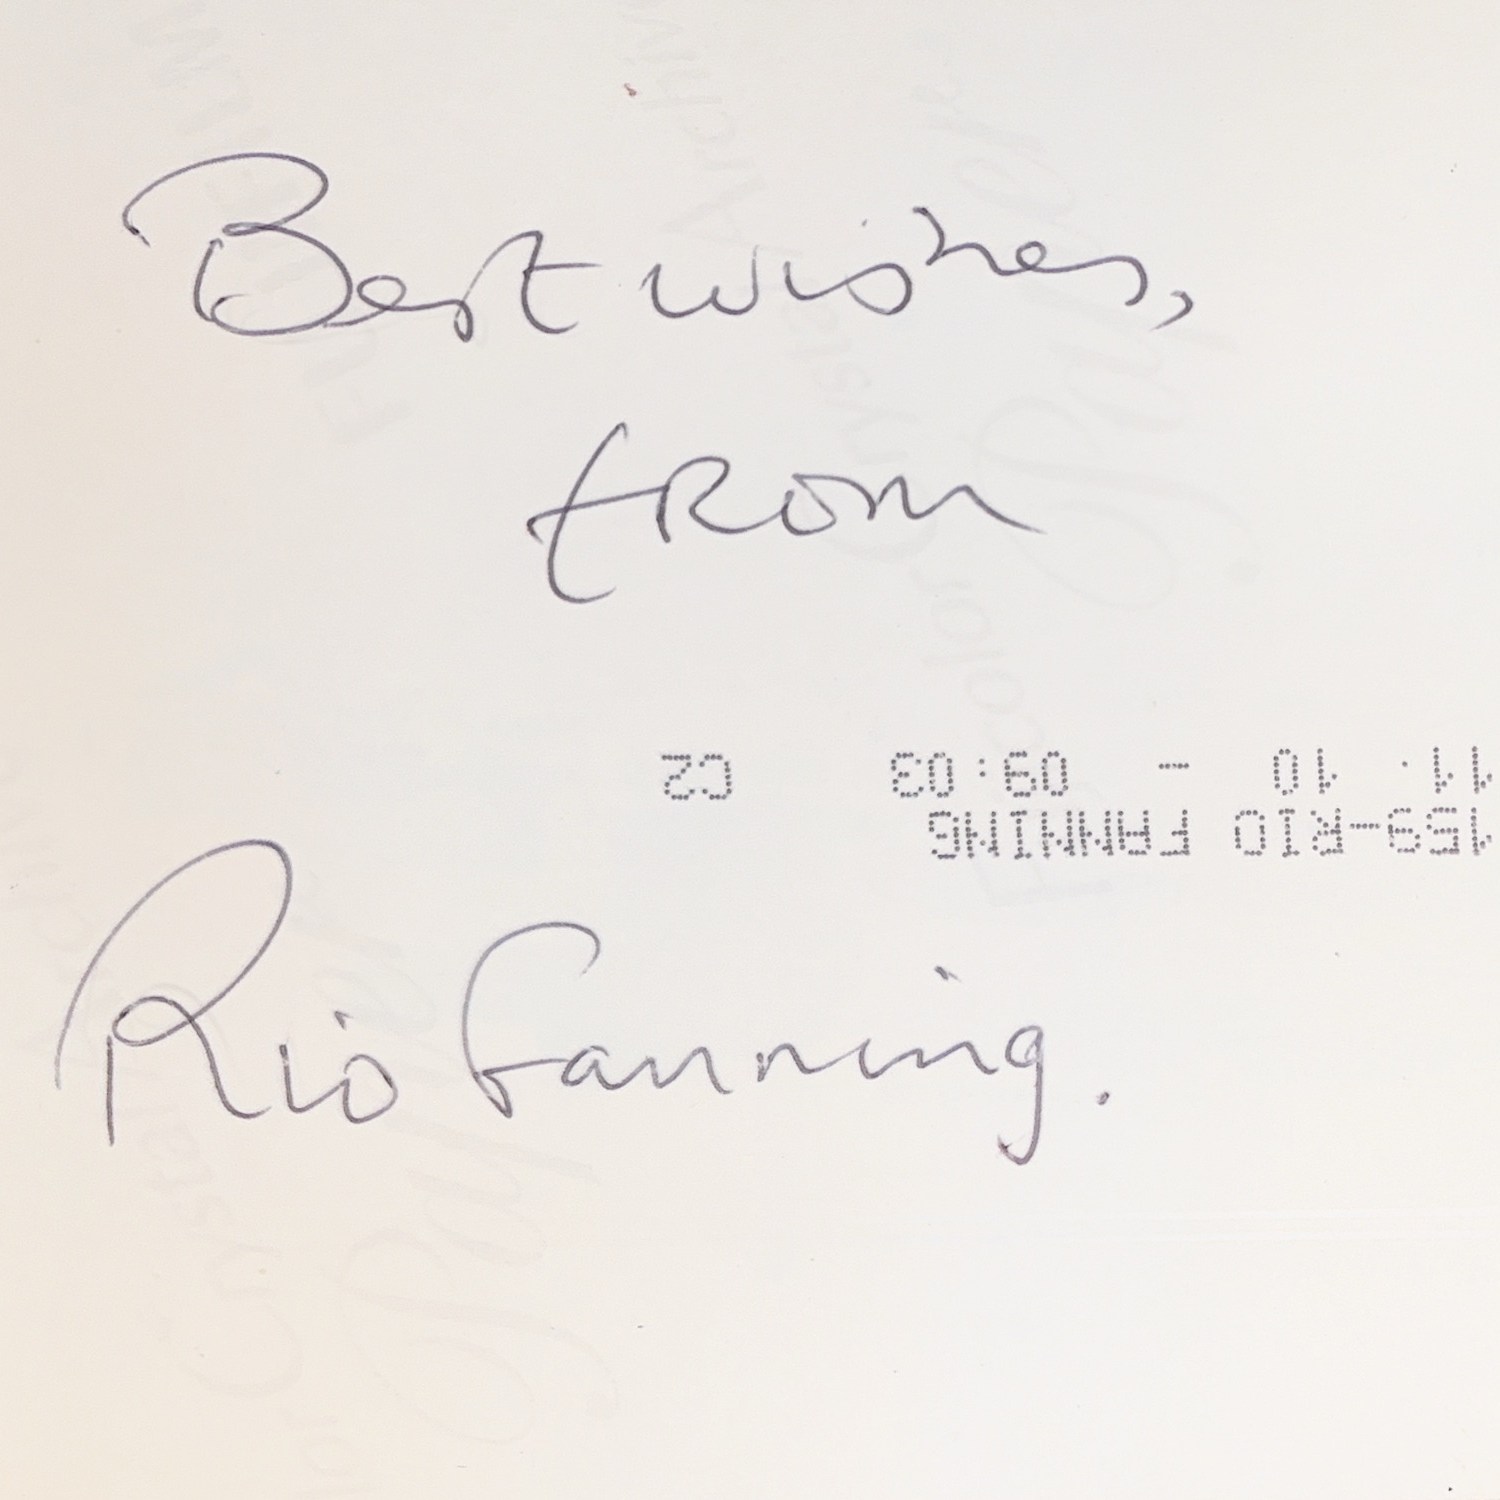 Best wishes,
from
11. 10 - 09:03 C2
159-RIO FANNING
Rio Fanning.